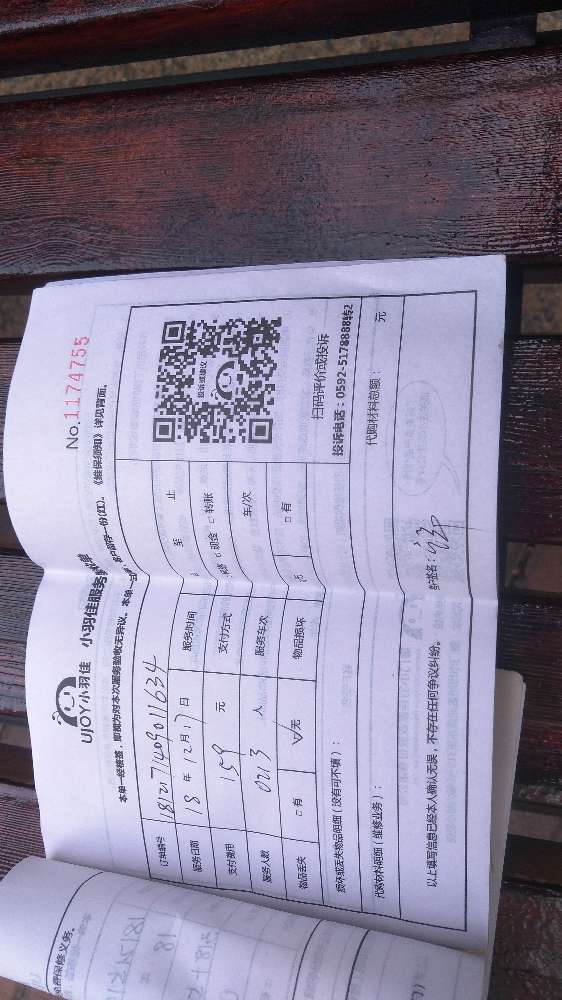 No.1174755
UJOY小羽佳 小羽佳服务
本单一经核签，即视为对本次服务验收无异议。本单一 客户留存一份(红)。《维保须知》详见背面。
订单编号 181217140901634
服务日期 18 年 12 月 17 日 服务时间 至 止
支付费用 159 元 支付方式 现金 □ 转账
服务人数 0213 人 服务车次 车/次
物品丢失 □ 有 √无 物品损坏 □ 有
投诉或建议
扫码评价或投诉
投诉电话：0592-5178888转2
损坏或丢失物品明细（没有可不填）：
代购材料明细（维修业务）： 代购材料总额： 元
以上填写信息已经本人确认无误，不存在任何争议纠纷。 签名：
免费保修义务。